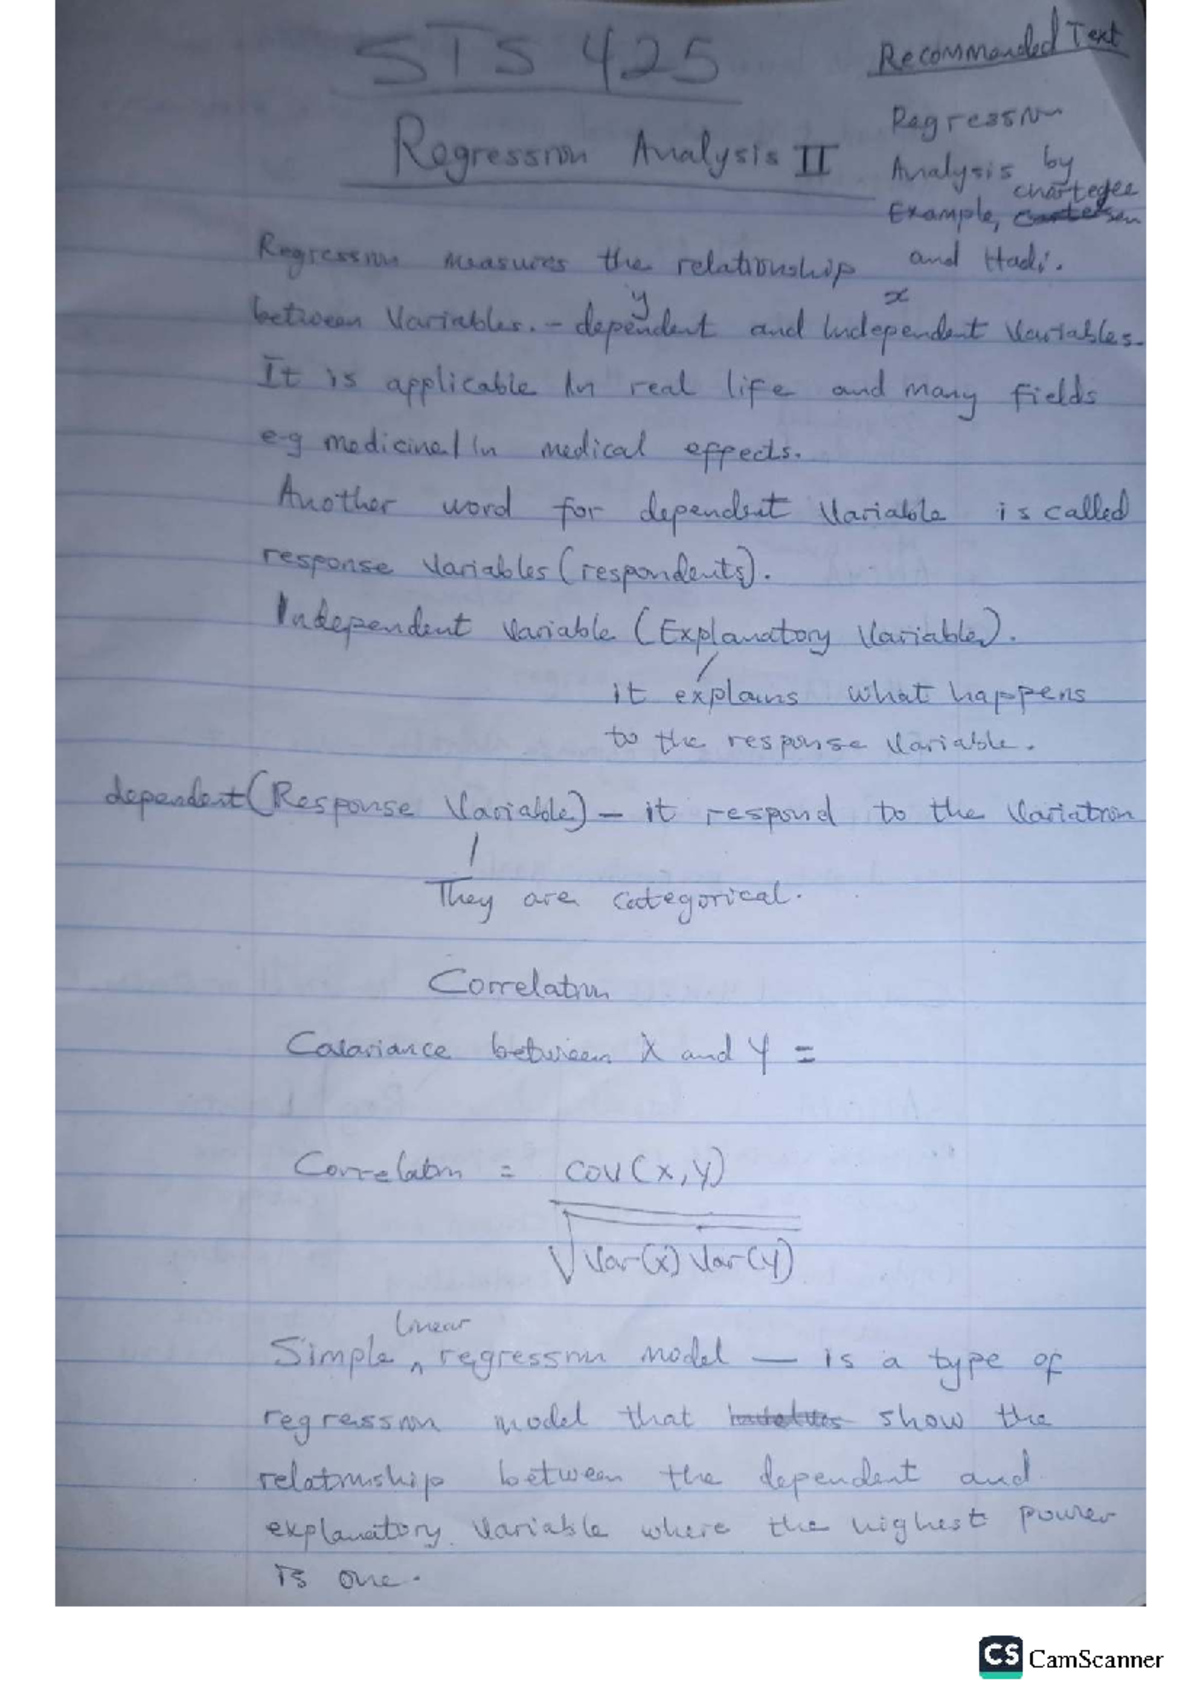 STS 425
Regression Analysis II
Recommended Text
Regression
Analysis by
chartegee
Example,
and Hadi.
Regression measures the relationship
between Variables. - dependent and Independent Variables.
y x
It is applicable in real life and many fields
e-g medicine/In medical effects.
Another word for dependent Variable is called
response Variables (respondents).
Independent Variable (Explanatory Variable).
it explains what happens
to the response Variable.
dependent (Response Variable) - it respond to the Variation
They are categorical.
Correlation
Covariance between X and Y =
Correlation = COV(X,Y)
√Var(X) Var(Y)
linear
Simple ^ regression model — is a type of
regression model that show the
relationship between the dependent and
explanatory Variable where the highest power
is one.
CS CamScanner